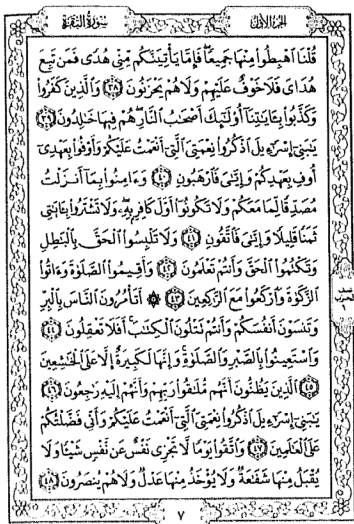 الجزء الأول سورة البقرة
قُلْنَا ٱهْبِطُوا۟ مِنْهَا جَمِيعًا ۖ فَإِمَّا يَأْتِيَنَّكُم مِّنِّى هُدًى فَمَن تَبِعَ
هُدَاىَ فَلَا خَوْفٌ عَلَيْهِمْ وَلَا هُمْ يَحْزَنُونَ ٣٨ وَٱلَّذِينَ كَفَرُوا۟
وَكَذَّبُوا۟ بِـَٔايَـٰتِنَآ أُو۟لَـٰٓئِكَ أَصْحَـٰبُ ٱلنَّارِ ۖ هُمْ فِيهَا خَـٰلِدُونَ ٣٩
يَـٰبَنِىٓ إِسْرَٰٓءِيلَ ٱذْكُرُوا۟ نِعْمَتِىَ ٱلَّتِىٓ أَنْعَمْتُ عَلَيْكُمْ وَأَوْفُوا۟ بِعَهْدِىٓ
أُوفِ بِعَهْدِكُمْ وَإِيَّـٰىَ فَٱرْهَبُونِ ٤٠ وَءَامِنُوا۟ بِمَآ أَنزَلْتُ
مُصَدِّقًا لِّمَا مَعَكُمْ وَلَا تَكُونُوٓا۟ أَوَّلَ كَافِرٍۭ بِهِۦ ۖ وَلَا تَشْتَرُوا۟ بِـَٔايَـٰتِى
ثَمَنًا قَلِيلًا وَإِيَّـٰىَ فَٱتَّقُونِ ٤١ وَلَا تَلْبِسُوا۟ ٱلْحَقَّ بِٱلْبَـٰطِلِ
وَتَكْتُمُوا۟ ٱلْحَقَّ وَأَنتُمْ تَعْلَمُونَ ٤٢ وَأَقِيمُوا۟ ٱلصَّلَوٰةَ وَءَاتُوا۟
ٱلزَّكَوٰةَ وَٱرْكَعُوا۟ مَعَ ٱلرَّٰكِعِينَ ٤٣ ۞ أَتَأْمُرُونَ ٱلنَّاسَ بِٱلْبِرِّ
وَتَنسَوْنَ أَنفُسَكُمْ وَأَنتُمْ تَتْلُونَ ٱلْكِتَـٰبَ ۚ أَفَلَا تَعْقِلُونَ ٤٤
وَٱسْتَعِينُوا۟ بِٱلصَّبْرِ وَٱلصَّلَوٰةِ ۚ وَإِنَّهَا لَكَبِيرَةٌ إِلَّا عَلَى ٱلْخَـٰشِعِينَ
٤٥ ٱلَّذِينَ يَظُنُّونَ أَنَّهُم مُّلَـٰقُوا۟ رَبِّهِمْ وَأَنَّهُمْ إِلَيْهِ رَٰجِعُونَ ٤٦
يَـٰبَنِىٓ إِسْرَٰٓءِيلَ ٱذْكُرُوا۟ نِعْمَتِىَ ٱلَّتِىٓ أَنْعَمْتُ عَلَيْكُمْ وَأَنِّى فَضَّلْتُكُمْ
عَلَى ٱلْعَـٰلَمِينَ ٤٧ وَٱتَّقُوا۟ يَوْمًا لَّا تَجْزِى نَفْسٌ عَن نَّفْسٍ شَيْـًٔا وَلَا
يُقْبَلُ مِنْهَا شَفَـٰعَةٌ وَلَا يُؤْخَذُ مِنْهَا عَدْلٌ وَلَا هُمْ يُنصَرُونَ ٤٨
٧